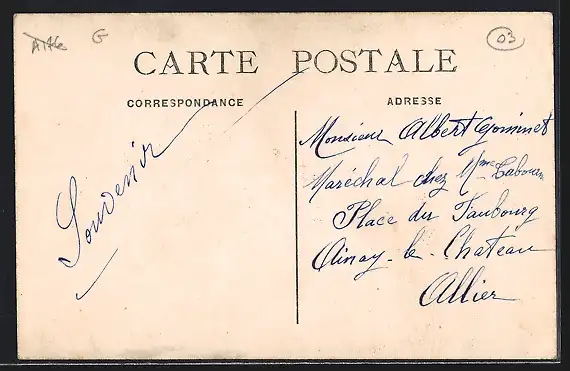 G
03
CARTE POSTALE
CORRESPONDANCE
ADRESSE
Souvenir
Monsieur Albert Gominet
Maréchal chez Mme Labourn
Place du Faubourg
Ainay-le-Chateau
Allier